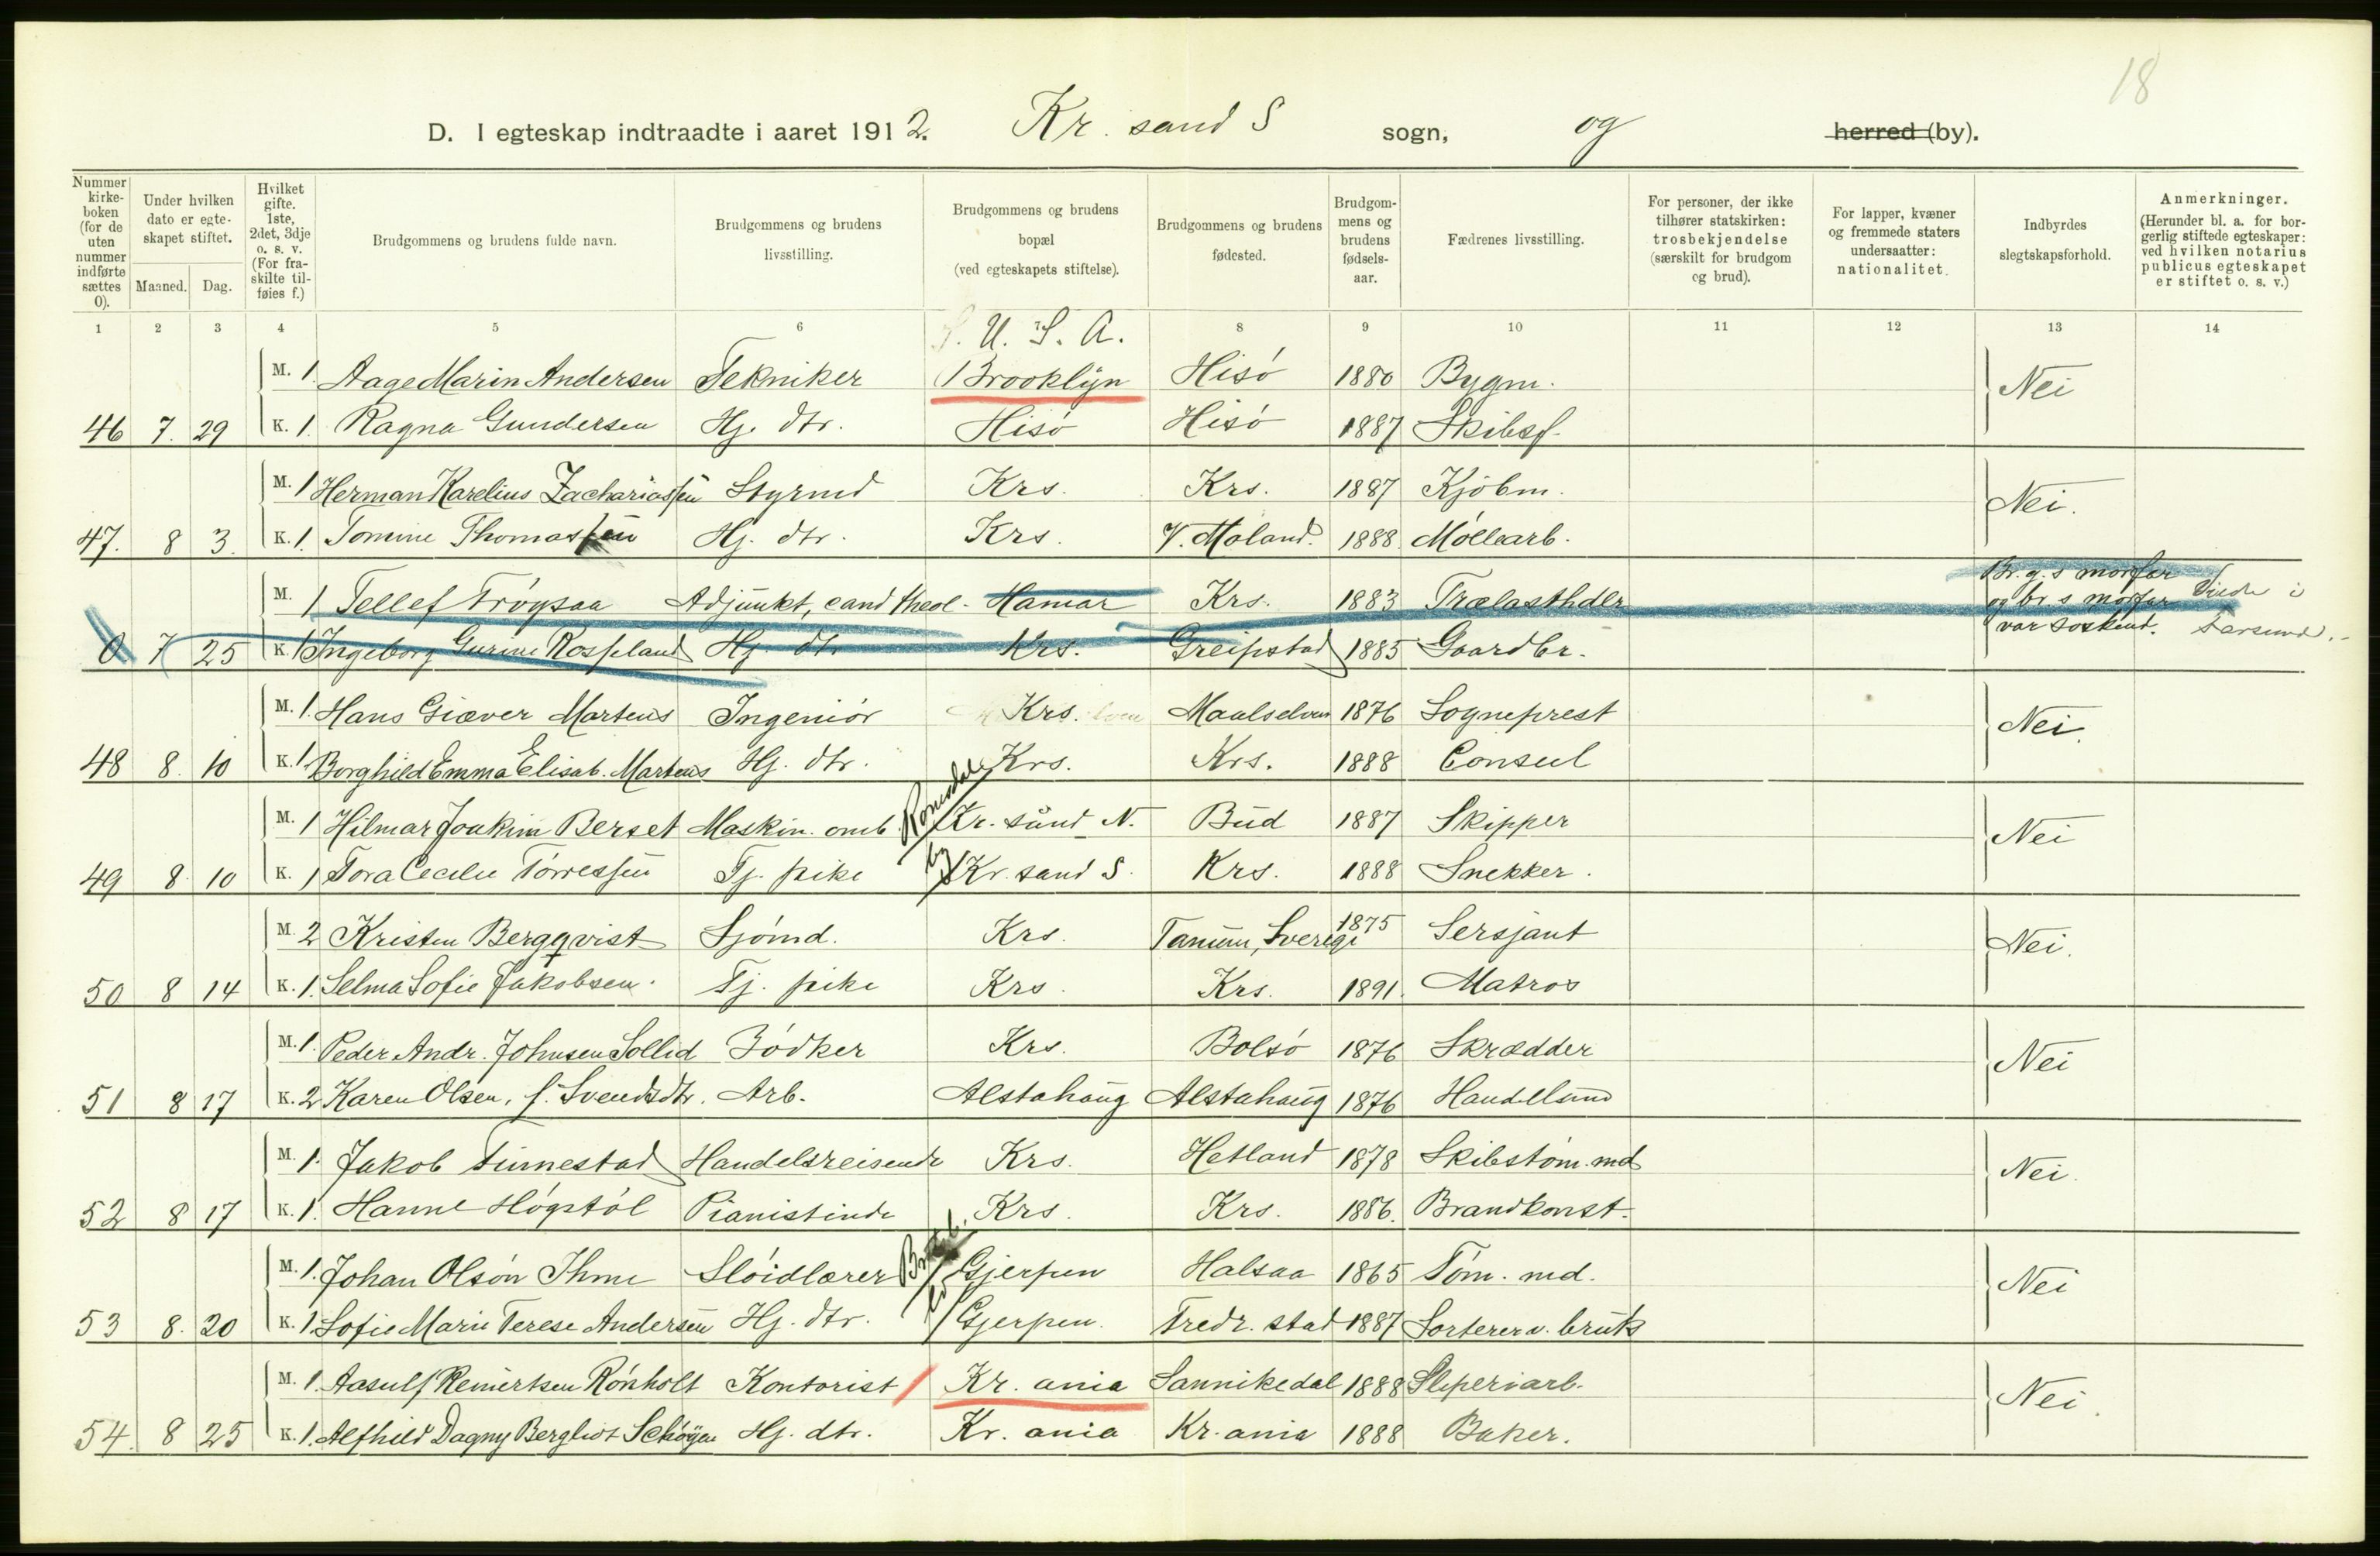 18
D. I egteskap indtraadte i aaret 1912. Kr. sand S sogn, og herred (by).
Nummer kirke-boken (for de uten nummer indførte sættes 0).
Under hvilken dato er egte-skapet stiftet.
Maaned. Dag.
Hvilket gifte. 1ste, 2det, 3dje o. s. v. (For fra-skilte til-føies f.)
Brudgommens og brudens fulde navn.
Brudgommens og brudens livsstilling.
Brudgommens og brudens bopæl (ved egteskapets stiftelse).
Brudgommens og brudens fødested.
Brudgom-mens og brudens fødsels-aar.
Fædrenes livsstilling.
For personer, der ikke tilhører statskirken: trosbekjendelse (særskilt for brudgom og brud).
For lapper, kvæner og fremmede staters undersaatter: nationalitet.
Indbyrdes slegtskapsforhold.
Anmerkninger. (Herunder bl. a. for bor-gerlig stiftede egteskaper: ved hvilken notarius publicus egteskapet er stiftet o. s. v.)
1 2 3 4 5 6 7 8 9 10 11 12 13 14
U. S. A.
M. 1. Aage Marin Andersen Tekniker Brooklyn Hisö 1880 Bygm. Nei
46 7. 29 K. 1. Ragna Gundersen Hj. dtr. Hisö Hisö 1887 Skibsf.
M. 1 Herman Karelius Zachariassen Styrmd Krs. Krs. 1887 Kjöbm. Nei.
47. 8 3. K. 1. Tomine Thomassen Hj. dtr. Krs. V. Moland. 1888 Möllearb.
M. 1 Tellef Trögsaa Adjunkt, cand theol. Hamar Krs. 1883 Trælasthdlr Br.g.s morfar og br.s morfar var søskend. Viede i Farsund.
0 7 25 K. 1 Ingeborg Gurine Rosseland Hj. dtr Krs. Greipstad 1885 Gaardbr.
M. 1. Hans Giæver Martens Ingeniör Krs. Maalselven 1876 Sogneprest Nei.
48 8. 10 K. 1 Borghild Emma Elisab. Martens Hj. dtr. Krs. Krs. 1888 Consul
M. 1 Hilmar Joakim Berset Maskin. omb. Romsdals Kr. sund N. Bud 1887 Skipper Nei
49 8. 10 K. 1 Tora Cecilie Törressen Tj. pike by Kr. sand S. Krs. 1888 Snekker.
M. 2 Kristen Bergqvist Sjömd. Krs. Tanum, Sverige 1875 Sersjant Nei.
50 8 14 K. 1. Selma Sofie Jakobsen. Tj. pike Krs. Krs. 1891. Matros
M. 1. Peder Andr. Johnsen Sollid Bödker Krs. Bolsö 1876 Skrædder Nei
51 8 17 K. 2 Karen Olsen, f. Svendsdtr. Arb. Alstahaug Alstahaug 1876 Handelsmd
M. 1. Jakob Finnestad Handelsreisende Krs. Hetland 1878 Skibstöm. md Nei.
52 8 17 K. 1. Hanne Högstöl Pianistinde Krs. Krs. 1886. Brandkonst.
M. 1. Johan Olsön Ihme Slöidlærer Gjerpen Halsaa 1865 Töm. md. Nei
53 8. 20 K. 1. Sofie Marie Terese Andersen Hj. dtr. Gjerpen. Fredr. stad 1887 Sorterer v. bruk
M. 1. Aasulf Reinertsen Rönholt Kontorist Kr. ania Sannikedal 1888 Sliperiarb. Nei.
54. 8 25 K. 1. Alfhild Dagny Bergliot Schöyen Hj. dtr. Kr. ania Kr. ania 1888 Baker.